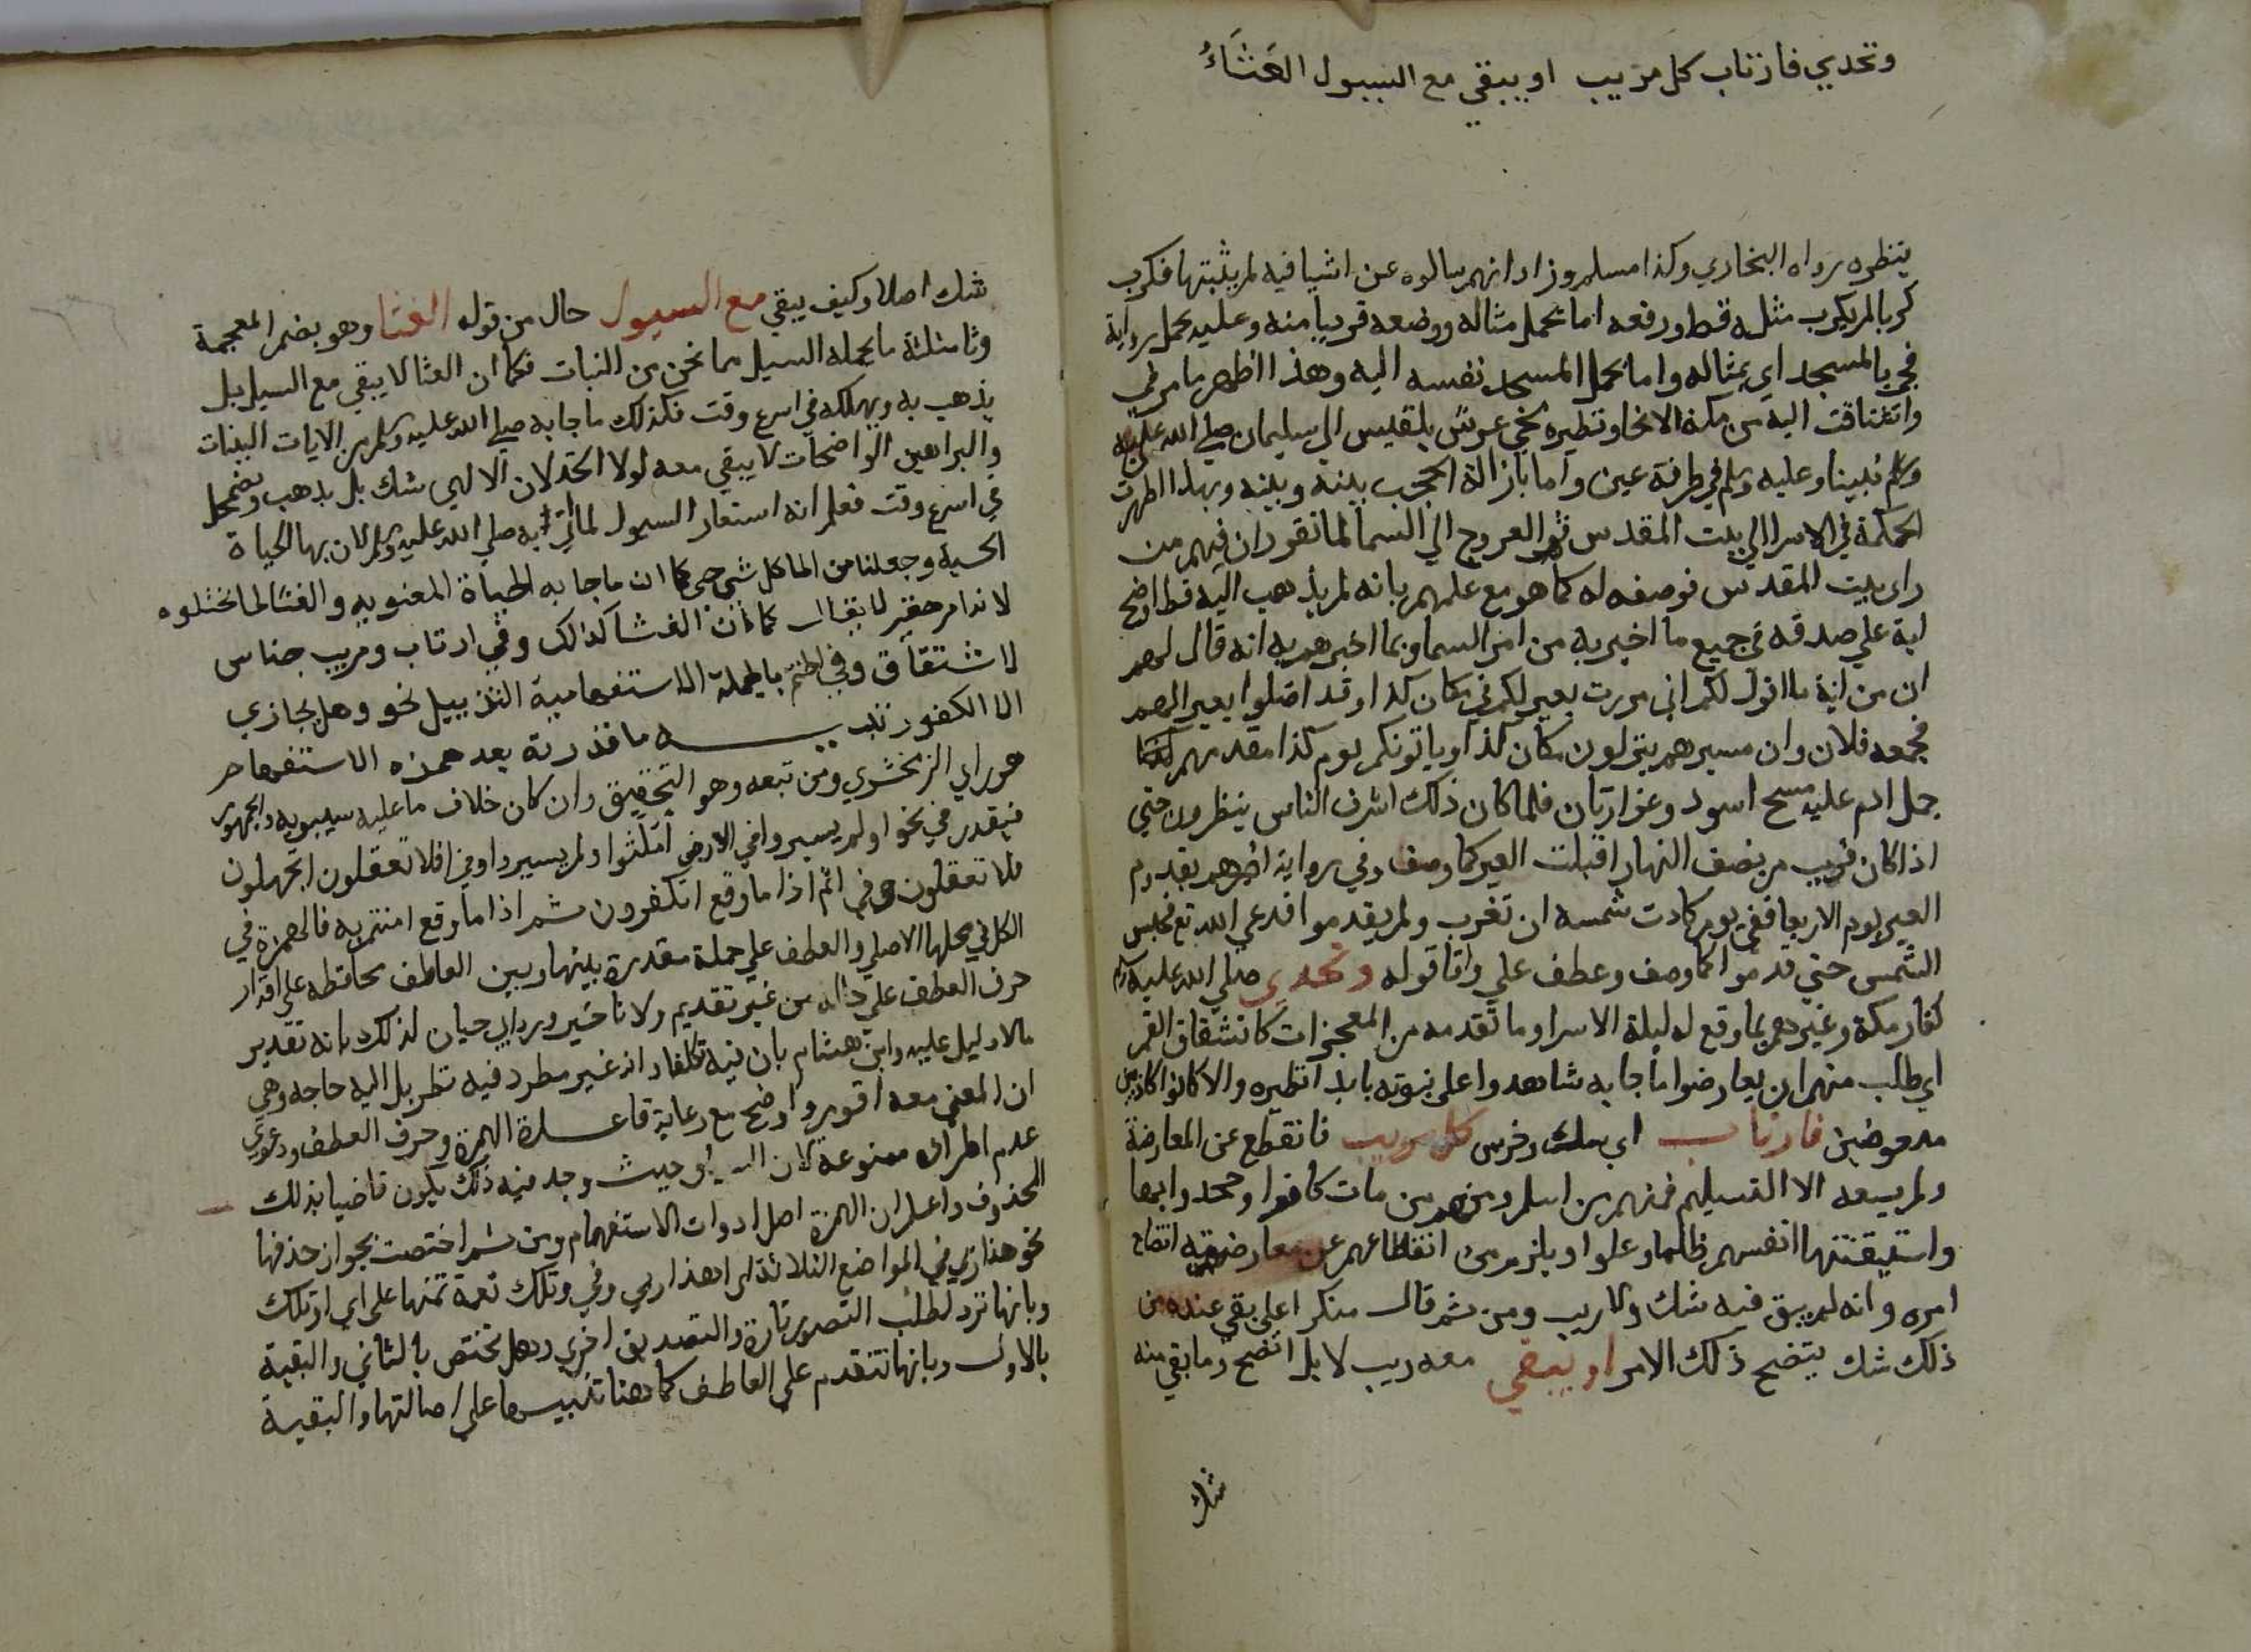 وتحدي فارتاب كل مريب او يبقي مع السيول الغثاء
ينظره رواه البخاري وكذا مسلم وزاد انهم سالوه عن اشيا فيه لم يثبتها فكرب
كربا لم يكرب مثله قط ورفعه اما بحمل مثاله ووضعه قريبا منه وعليه يحمل رواية
فجئ بالمسجد اي بمثاله واما بحمل المسجد نفسه اليه وهذا اظهر ما مر في
اليه من مكة الا نحا ونظيره مجئ عرش بلقيس الي سليمان صلي الله علي
وسلم نبينا وعليه وسلم في طرفة عين واما بازالة الحجب بينه وبينه وبهذا اظهرت
الحكمة في الاسرا الي بيت المقدس ثم العروج الي السما لما تقرر ان فيهم من
راي بيت المقدس فوصفه له كما هو مع علمهم بانه لم يذهب اليه قط اوضح
اية علي صدقه في جميع ما اخبر به من امر السما ومما اخبرهم به انه قال لهم
ان من اية ما اقول لكم اني مررت بعير لكم في مكان كذا وقد اضلوا بعيرا لهم
فجمعه فلان وان مسيرهم ينزلون مكان كذا وياتونكم يوم كذا مقدمهم
جمل ادم عليه مسح اسود وغرارتان فلما كان ذلك اشرف الناس ينظرون حتي
اذا كان قريب من نصف النهار اقبلت العير كما وصف وفي رواية اخبرهم بقدوم
العير يوم الاربعا ففي يومه كادت شمسه ان تغرب ولم يقدموا فدعي الله تع فحبس
الشمس حتي قدموا كما وصف وعطف علي وافا قوله وتحدي صلي الله عليه وسلم
كفار مكة وغيرهم بما وقع له ليلة الاسرا وما تقدمه من المعجزات كانشقاق القمر
اي طلب منهم ان يعارضوا ما جا به شاهدوا علي نبوته بابدا نظيره والا كانوا كاذبين
فارتاب اي شك وخرس كل مريب فانقطع عن المعارضة
ولم يسعه الا التسليم فمنهم من اسلم ومنهم من مات كافرا وجحدوا بها
واستيقنتها انفسهم ظلما وعلوا ويلزم من انقطاعهم عن معارضته اتضاح
امره وانه لم يبق فيه شك ولا ريب ومن ثم قال منكرا علي بقي عنده من
ذلك شك يتضح ذلك الامر او يبقي معه ريب لا بل اتضح وما بقي منه
شك
شك اصلا وكيف يبقي مع السيول حال من قوله الغثا وهو بضم المعجمة
وثا مثلثة ما يحمله السيل مما نحن من النبات فكما ان الغثا لا يبقي مع السيل بل
يذهب به ويهلكه في اسرع وقت فكذلك ما جا به صلي الله عليه وسلم من الايات البينات
والبراهين الواضحات لا يبقي معه لولا الخذلان الالهي شك بل يذهب ويضمحل
في اسرع وقت فعلم انه استعار السيول لما اتي به صلي الله عليه وسلم لان بها الحياة
الحسية وجعلنا من الما كل شي حي كما ان ما جا به الحياة المعنوية والغثا لما اختلوه
لانه امر حقير لا بقا له كما ان الغثا كذلك وفي ارتاب ومريب جناس
لاشتقاق وفي الختم بالجملة الاستفهامية التذييل نحو وهل يجازي
الا الكفور تنبيه ما قدرته بعد همزه الاستفهام
هو راي الزمخشري ومن تبعه وهو التحقيق وان كان خلاف ما عليه سيبويه والجمهور
فيقدر في نحو اولم يسيروا في الارض امكثوا ولم يسيروا وفي افلا تعقلون اتجهلون
فلا تعقلون وفي اثم اذا ما وقع اتكفرون ثم اذا ما وقع امنتم به فالهمزة في
الكل في محلها الاصلي والعطف علي جملة مقدرة بينها وبين العاطف محافظه علي اقرار
حرف العطف علي حاله من غير تقديم ولا تاخير ورد ابي حيان لذلك بانه تقدير
مالا دليل عليه وابن هشام بان فيه تكلفا وانه غير مطرد فيه نظر بل اليه حاجه وهي
ان المعني معه اقوي واوضح مع رعاية قاعدة الهمزة وحرف العطف ودعوي
عدم اطراده ممنوعة لان حيث وجد فيه ذلك يكون قاضيا بذلك
المحذوف واعلم ان الهمزة اصل ادوات الاستفهام ومن ثم اختصت بجواز حذفها
نحو هذا ربي في المواضع الثلاثة اي اهذا ربي وفي وتلك نعمة تمنها علي اي اوتلك
وبانها ترد لطلب التصور تارة والتصديق اخري وهل تختص بالثاني والبقية
بالاول وبانها تتقدم علي العاطف كما هنا تنبيها علي اصالتها والبقية